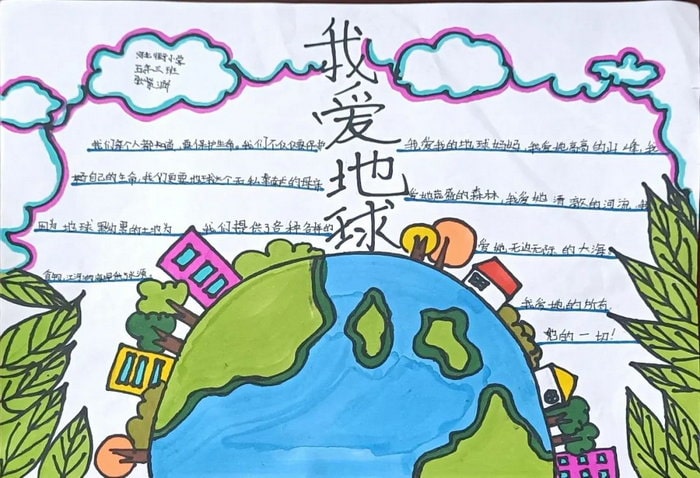 我爱地球
小学
五年三班
我们每个人都知道，要保护生命。我们不仅仅要保护
好自己的生命，我们更要地球这个无私奉献的母亲
因为地球 的土地为 我们提供了各种各样的
我爱我的地球妈妈，我爱她高高的山峰，我
爱她茂盛的森林，我爱她清澈的河流，我
爱她无边无际的大海
我爱她的所有
她的一切！